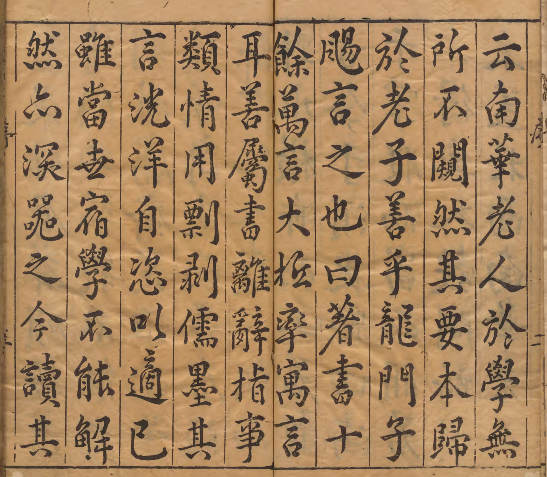 云南華老人於學無
所不闚然其要本歸
於老子善乎龍門子
颺言之也曰著書十
餘萬言大抵率寓言
耳善屬書離辭指事
類情用剽剝儒墨其
言洸洋自恣以適已
雖當世宿學不能解
然亦深之今讀其